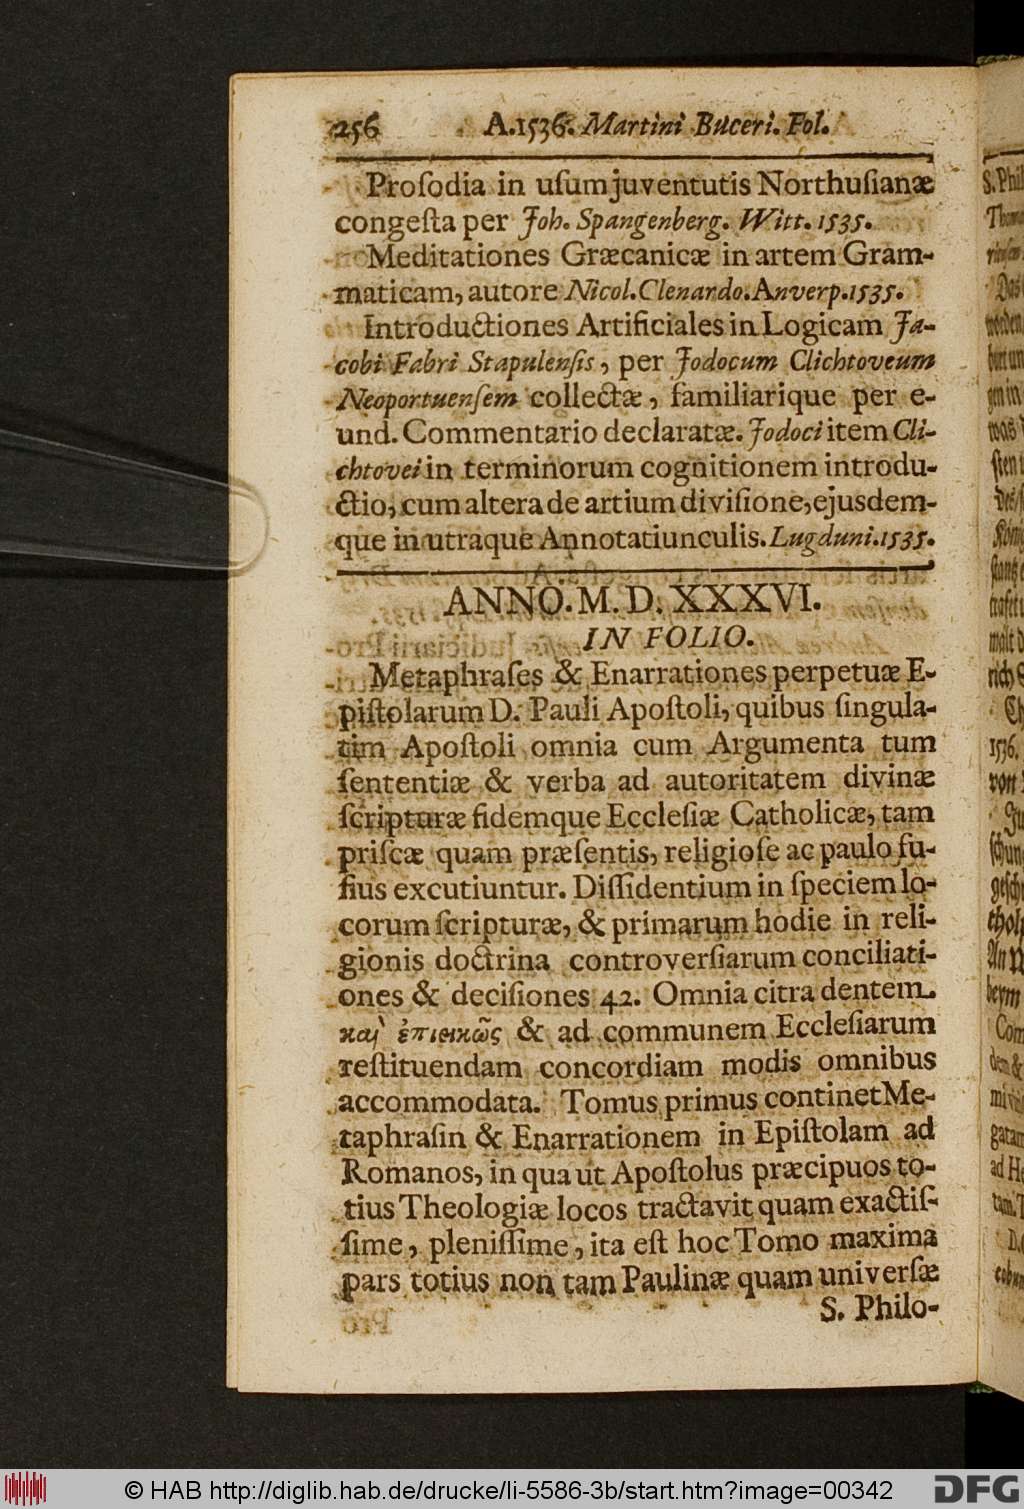 256 A. 1536. Martini Buceri. Fol.
Proſodia in uſum juventutis Northuſianæ
congeſta per Joh. Spangenberg. Witt. 1535.
Meditationes Græcanicæ in artem Gram-
maticam, autore Nicol. Clenardo. Anverp. 1535.
Introductiones Artificiales in Logicam Ja-
cobi Fabri Stapulenſis, per Jodocum Clichtoveum
Neoportuenſem collectæ, familiarique per e-
und. Commentario declaratæ. Jodoci item Cli-
chtovei in terminorum cognitionem introdu-
ctio, cum altera de artium diviſione, ejusdem-
que in utraque Annotatiunculis. Lugduni. 1535.
ANNO. M. D. XXXVI.
IN FOLIO.
Metaphraſes & Enarrationes perpetuæ E-
piſtolarum D. Pauli Apoſtoli, quibus ſingula-
tim Apoſtoli omnia cum Argumenta tum
ſententiæ & verba ad autoritatem divinæ
ſcripturæ fidemque Eccleſiæ Catholicæ, tam
priſcæ quam præſentis, religioſe ac paulo fu-
ſius excutiuntur. Diſſidentium in ſpeciem lo-
corum ſcripturæ, & primarum hodie in reli-
gionis doctrina controverſiarum conciliati-
ones & deciſiones 42. Omnia citra dentem
καὶ ἐπιεικῶς & ad communem Eccleſiarum
reſtituendam concordiam modis omnibus
accommodata. Tomus primus continet Me-
taphraſin & Enarrationem in Epiſtolam ad
Romanos, in qua ut Apoſtolus præcipuos to-
tius Theologiæ locos tractavit quam exactiſ-
ſime, pleniſſime, ita eſt hoc Tomo maxima
pars totius non tam Paulinæ quam univerſæ
S. Philo-
© HAB http://diglib.hab.de/drucke/li-5586-3b/start.htm?image=00342
DFG